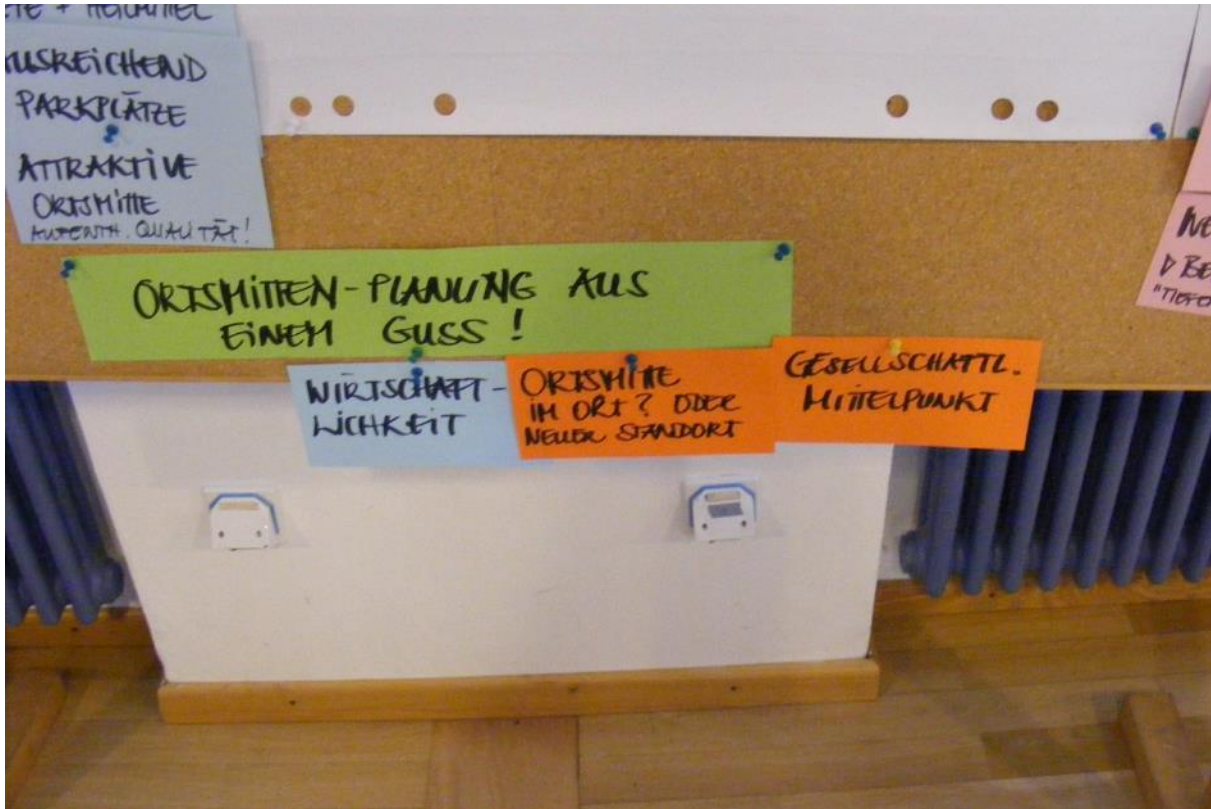 + HEILMITTEL
AUSREICHEND
PARKPLÄTZE
ATTRAKTIVE
ORTSMITTE
AUFENTH. QUALITÄT!
ORTSMITTEN-PLANUNG AUS
EINEM GUSS!
WIRTSCHAFT-
LICHKEIT
ORTSMITTE
IM ORT? ODER
NEUER STANDORT
GESELLSCHAFTL.
MITTELPUNKT